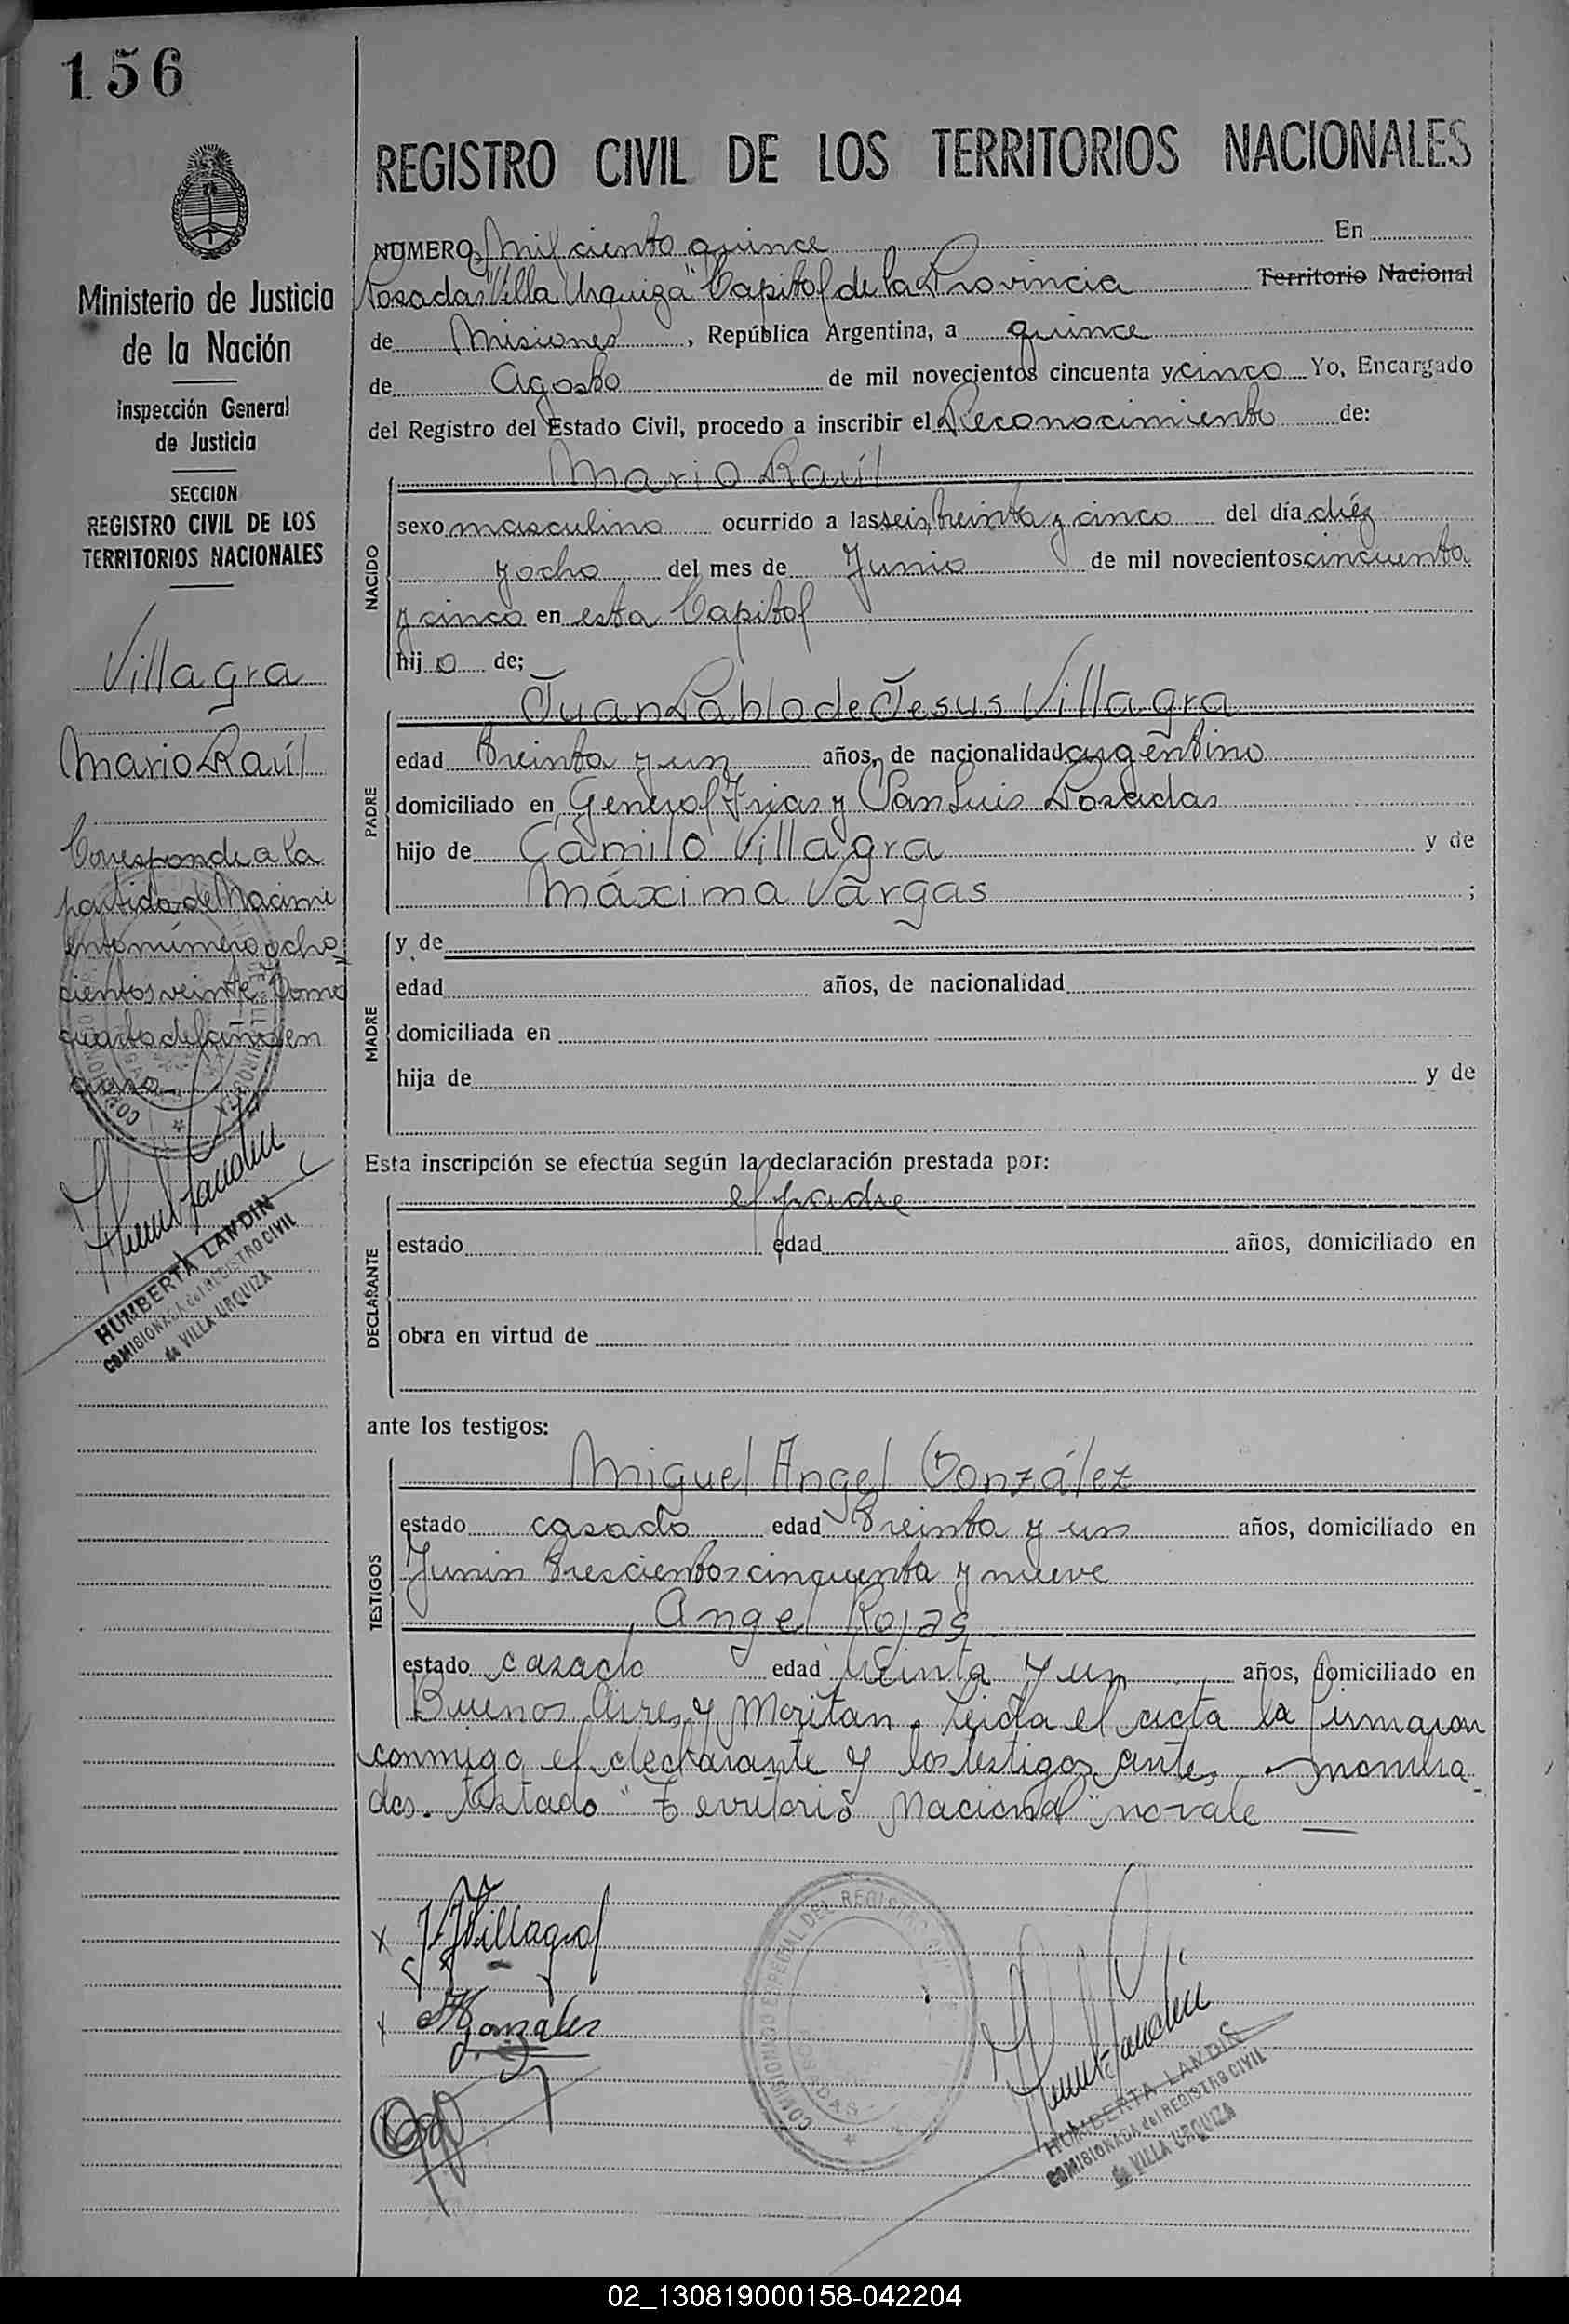 156
Ministerio de Justicia
de la Nación
Inspección General
de Justicia
SECCION
REGISTRO CIVIL DE LOS
TERRITORIOS NACIONALES
Villagra
Mario Raúl
Corresponde a la
partida de Nacimi
ento número ocho
cientos veinte Tomo
cuarto del año en
curso
HUMBERTA LANDIN
COMISIONADA del REGISTRO CIVIL
de VILLA URQUIZA
REGISTRO CIVIL DE LOS TERRITORIOS NACIONALES
NUMERO mil ciento quince En
Posadas "Villa Urquiza" Capital de la Provincia Territorio Nacional
de Misiones, República Argentina, a quince
de Agosto de mil novecientos cincuenta y cinco Yo, Encargado
del Registro del Estado Civil, procedo a inscribir el Reconocimiento de:
NACIDO
Mario Raúl
sexo masculino ocurrido a las seis, treinta y cinco del día diéz
y ocho del mes de Junio de mil novecientos cincuenta
y cinco en esta Capital
hijo de;
PADRE
Juan Pablo de Jesus Villagra
edad treinta y un años, de nacionalidad argentino
domiciliado en General Frias y San Luis Posadas
hijo de Camilo Villagra y de
Máxima Vargas ;
MADRE
y de
edad años, de nacionalidad
domiciliada en
hija de y de
Esta inscripción se efectúa según la declaración prestada por:
DECLARANTE
el padre
estado edad años, domiciliado en
obra en virtud de
ante los testigos:
TESTIGOS
Miguel Angel González
estado casado edad treinta y un años, domiciliado en
Junin trescientos cincuenta y nueve
Angel Rojas
estado casado edad treinta y un años, domiciliado en
Buenos Aires y Moritan. Leida el acta la firmaron
conmigo el declarante y los testigos antes nombra-
dos. Testado "Territorio Nacional" no vale
x J P Villagra
x MAGonzalez
COMISIONADO ESPECIAL DEL REGISTRO
POSADAS
HUMBERTA LANDIN
COMISIONADA del REGISTRO CIVIL
de VILLA URQUIZA
02_130819000158-042204